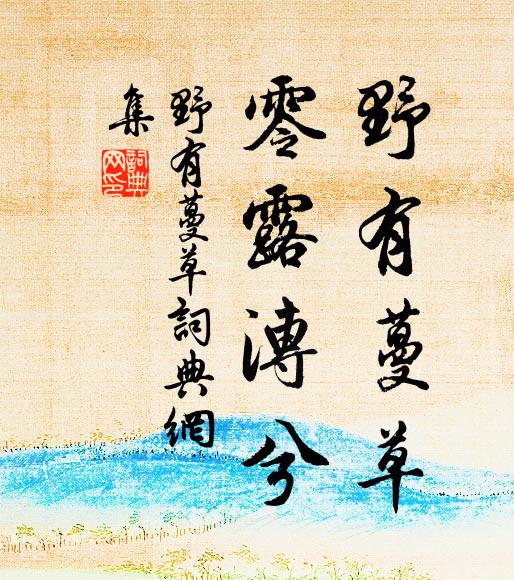 野有蔓草
零露漙兮
野有蔓草詞典網
集
詞典
网印